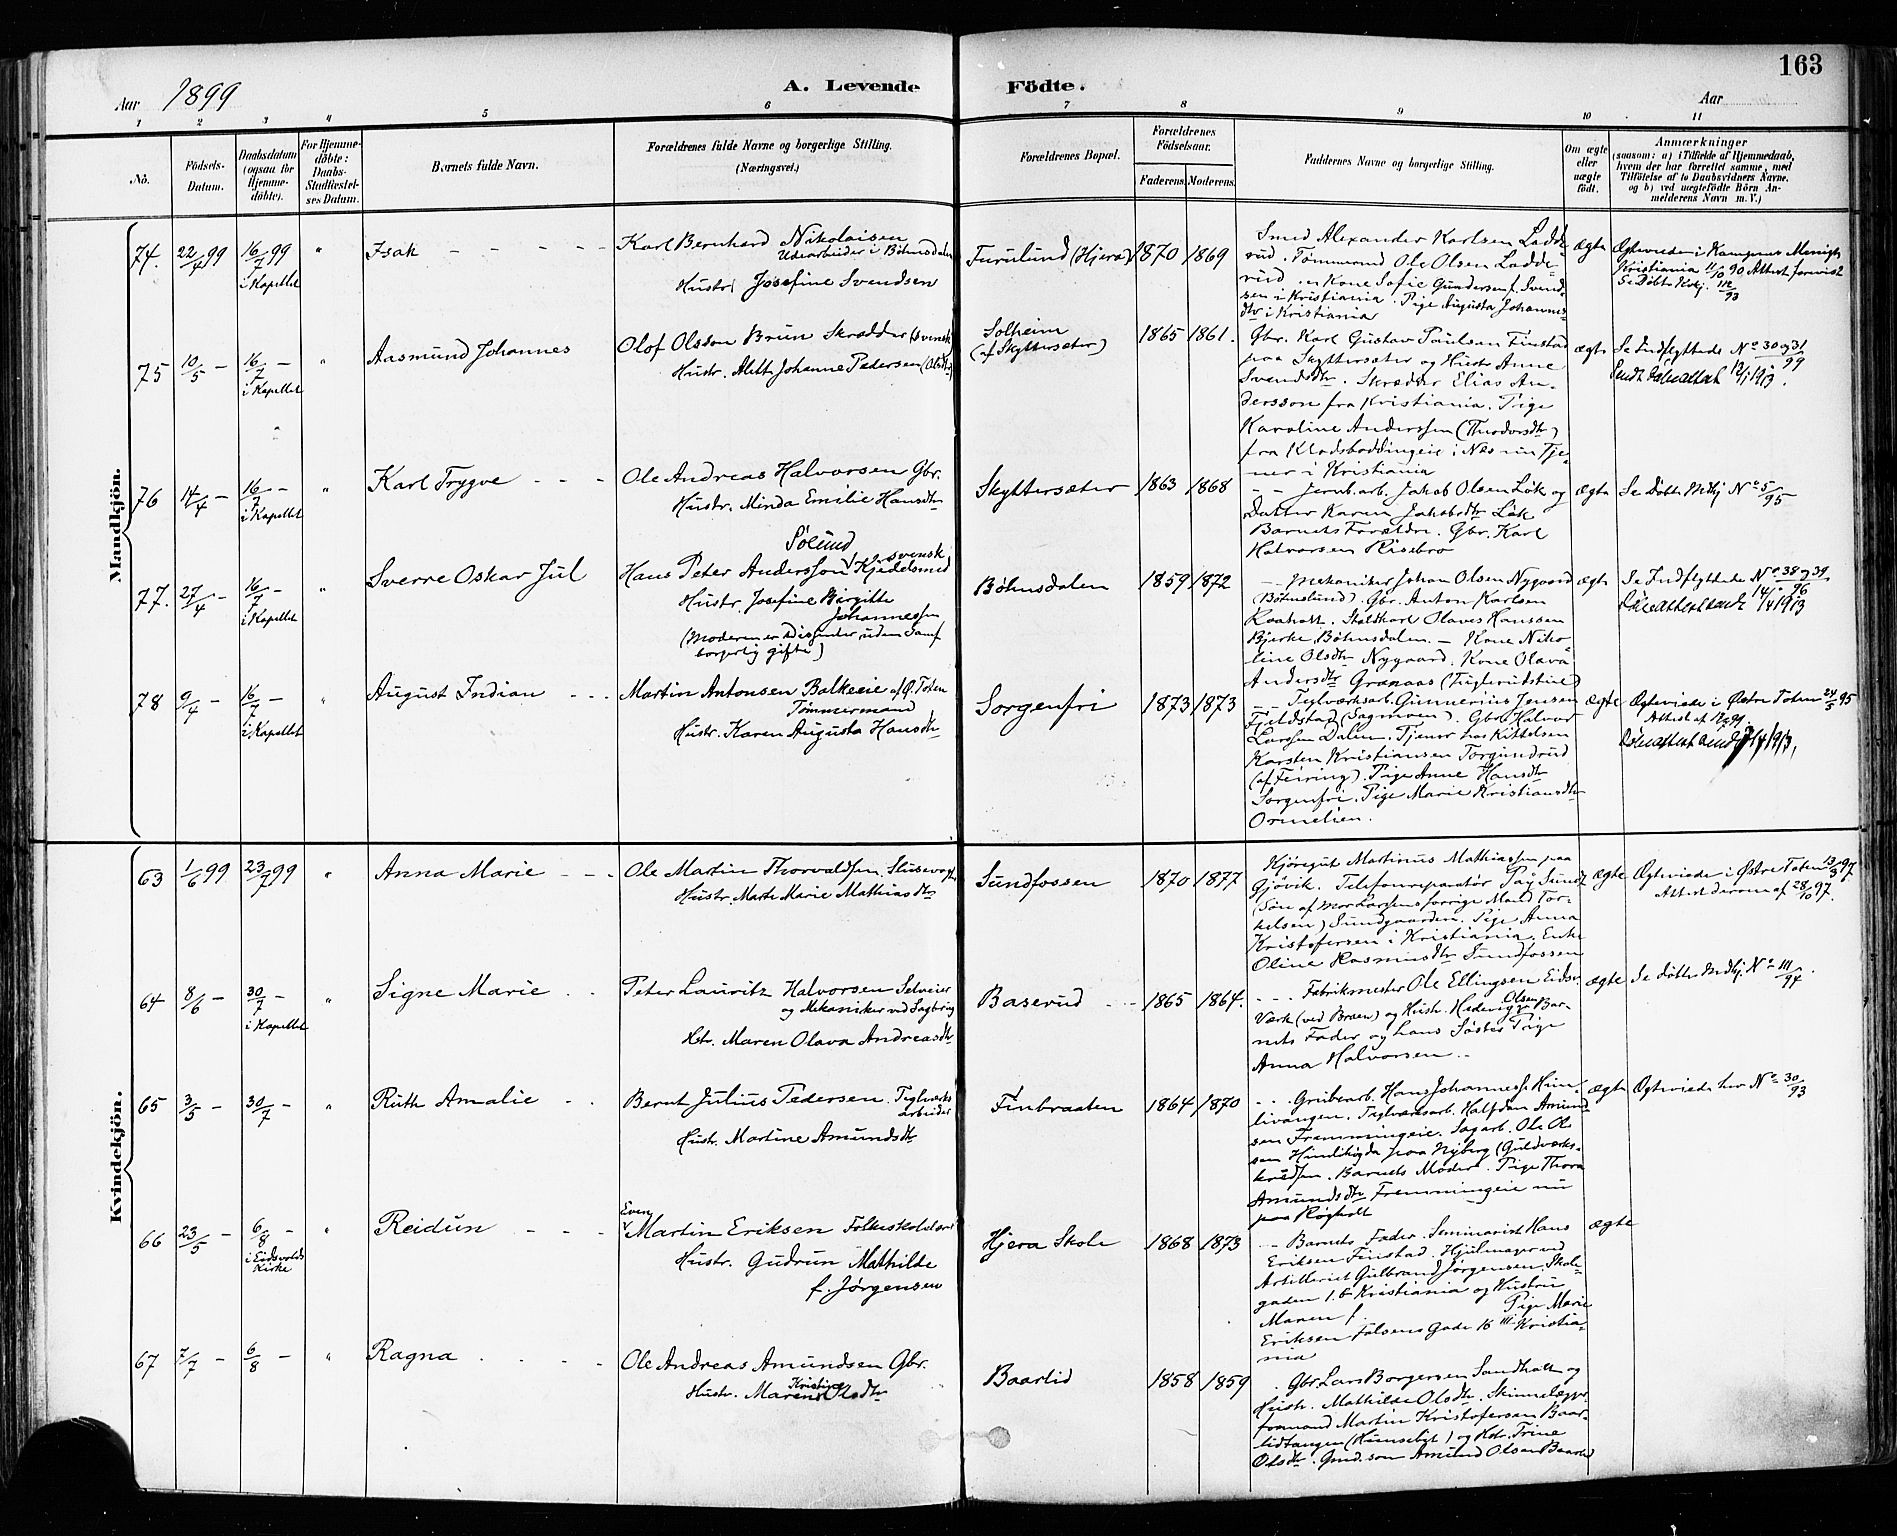 163
Aar 1899
A. Levende Födte.
Aar
1 2 3 4 5 6 7 8 9 10 11
No.
Födsels-
Datum.
Daabsdatum
(ogsaa for
Hjemme-
döbte).
For Hjemme-
döbte:
Daabs-
Stadfæstel-
ses Datum.
Barnets fulde Navn.
Forældrenes fulde Navne og borgerlige Stilling.
(Næringsvei.)
Forældrenes Bopæl.
Forældrenes
Födselsaar.
Faderens. Moderens.
Faddernes Navne og borgerlige Stilling.
Om ægte
eller
uægte
födt.
Anmærkninger
(saasom: a) i Tilfælde af Hjemmedaab,
hvem der har forrettet samme, med
Tilföielse af to Daabsvidners Navne,
og b) ved uægtefödte Börn An-
melderens Navn m. V.)
Mandkjön.
74. 22/4 99 16/7 99 i Kapellet " Isak
Karl Bernhard Nikolaisen
Udearbeider i Bøhnsdalen
Hustr. Josefine Svendsen
Furulund (Hjera) 1870 1869
Smed Alexander Karlsen Ladde-
rud. Tømmermd Ole Olsen Ladde-
rud og Kone Sofie Gundersen f. Svend-
sen i Kristiania. Pige Augusta Johannes-
dtr i Kristiania
ægte
Ægteviede i Kampens Menigh
Kristiania 11/10 90 Attest forevist
Se Døbte Kvkj. 112/93
75 10/5 - 16/7 - i Kapellet " Aasmund Johannes
Olof Olsson Brun Skrædder (svensk)
Hustr. Alett Johanne Pedersen (Olsdtr)
Solheim
(af Skyttersæter)
1865 1861.
Gbr. Karl Gustav Paulsen Finstad
paa Skyttersæter og Hustr. Anne
Svendsdtr. Skrædder Elias An-
dersson fra Kristiania. Pige
Karoline Anderssen (Theodorsdtr)
fra Kladsboddingeie i Næs nu Tje-
ner i Kristiania
ægte
Se Indflyttede No 30 og 31/99
Sendt daabsattest 12/1 1913.
76 14/4 - 16/7 - i Kapellet " Karl Trygve
Ole Andreas Halvorsen Gbr.
Hustr. Minda Emilie Hansdtr
Skyttersæter 1863 1868
Jernb.arb. Jakob Olsen Løk og
Datter Karen Jakobsdtr Løk
Barnets Forældre. Gbr. Karl
Halvorsen Risebro
ægte
Se Døbte Mdkj No 5/95
77. 27/4 - 16/7 - i Kapellet " Sverre Oskar Jul
Sølund
Hans Peter Andersson Kjedelsmed svensk
Hustr. Josefine Birgitte
Johannessen
(Moderen er Dissenter, uden Samf
borgerlig gifte)
Bøhnsdalen 1859 1872
Mekaniker Johan Olsen Nygaard
(Bøhnslund). Gbr. Anton Karlsen
Raaholt. Staldkarl Olaves Hanssen
Bjerke, Bøhnsdalen. - Kone Niko-
line Olsdtr Nygaard. Kone Olava
Andersdtr Grænaas
ægte
Se Indflyttede No 38 og 39/96
1/4 1913
78 9/4 - 16/7 - i Kapellet " August Indian
Martin Antonsen Balkeeie af Ø. Toten
Tømmermand
Hustr. Karen Augusta Hansdtr
Sorgenfri 1873 1873
Teglværksarb. Gunnerius Jensen
Fjeldstad (Sagmoen). Gbr. Halvor
Larssen Dalen. Tjener hos Kittelsen
Karsten Kristiansen Torgundrud
(af Feiring). Pige Anne Hansdtr
Sorgenfri. Pige Marie Kristiansdtr
Ormelien.
ægte
Ægteviede i Østre Toten 24/5 95
Attest af
1/4 1913.
Kvindekjön.
63 1/6 99 23/7 99 " Anna Marie
Ole Martin Thorvaldsen Slusevogter
Hustr. Marte Marie Mathiasdtr
Sundfossen 1870 1877
Kjøregut Martinus Mathiassen paa
Gjøvik. Telefonreparatør Paŭ Sund
(Søn af Mor Larsens forrige Mand Tor-
kelsen) Sundgaarden. Pige Anna
Kristofersen i Kristiania. Enke
Oline Rasmusdtr Sundfossen
ægte
Ægteviede i Østre Toten 13/3 97.
Attest derom af 28/10 97.
64 8/6 - 30/7 - i Kapellet " Signe Marie
Peter Lauritz Halvorsen Selveier
og Mekaniker ved Sagbrug
Hstr. Maren Olava Andreasdtr
Baserud 1865 1864.
Fabrikmester Ole Ellingsen Eidsv.
Værk (ved Broen) og Hustr. Hedevig Olsen Bar-
nets Fader og hans Søster Pige
Anna Halvorsen
ægte
Se døbte Mdkj. No 111/94.
65 3/5 - 30/7 - " Ruth Amalie
Bernt Julius Pedersen. Teglværks
arbeider
Hustr. Martine Amundsdtr
Finbraaten 1864 1870
Grubearb. Hans Johanness. Him-
livangen. Teglværksarb. Halfdan Amund-
sen Fremmingeie. Sagarb. Ole Ol-
sen Hindibøgda paa Nyberg (Guldværks-
Barnets Moder. Pige Thora
Amundsdtr Fremmingeie nu
paa Røgholt
ægte
Ægteviede her No 30/93
66 23/5 - 6/8 - i Eidsvolds Kirke " Reidun
Even
Martin Eriksen Folkeskolelærer
Hustr. Gudrun Mathilde
f. Jørgensen
Hjera Skole 1868 1873
Barnets Fader. Seminarist Hans
Eriksen Finstad. Hjulmager ved
Artilleriet Gulbrand Jørgensen, Skole-
gaden 1.b Kristiania og Hustru
Maren f. Pige Marie
Eriksen Falsens Gade 16 III Kristia-
nia
ægte
67 7/7 - 6/8 - " Ragna
Ole Andreas Amundsen Gbr.
Hustr. Maren Kristine Olsdtr
Baarlid 1858 1859
Gbr Lars Borgersen Sandholt og
Hustr. Mathilde Olsdtr. Skinnelægger-
formand Martin Kristofersen Baar-
lidtangen (Hunsebyt) og Hstr. Trine
Olsdtr. Gmd.søn Amund Olsen Baarlid